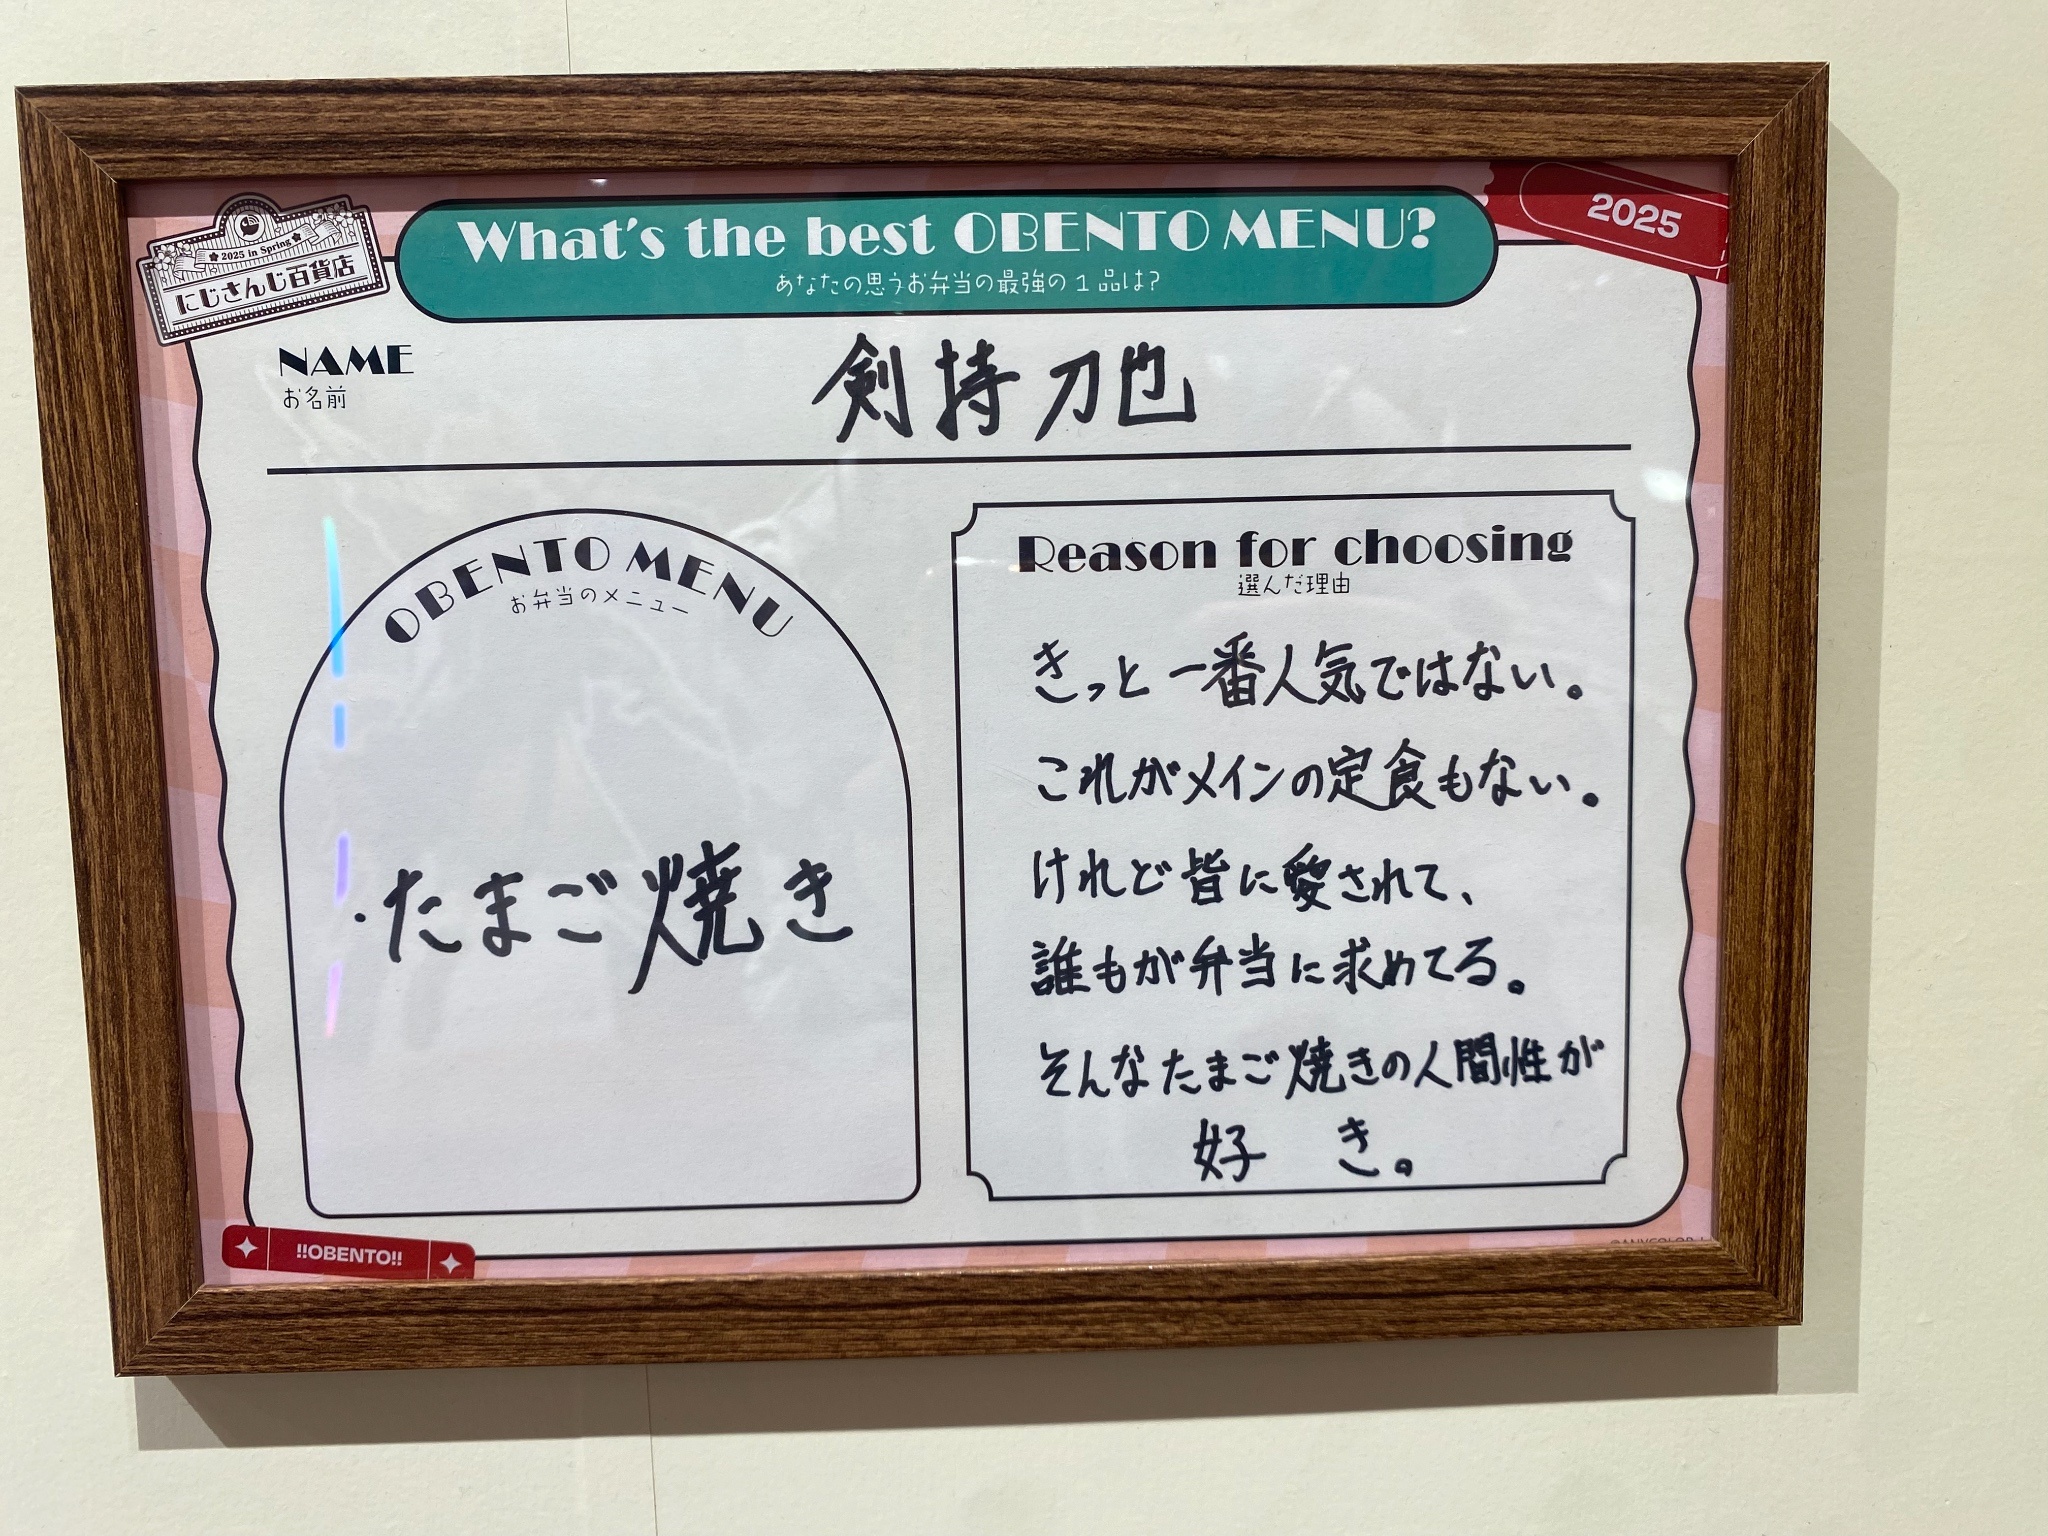 2025 in Spring
にじさんじ百貨店
What's the best OBENTO MENU?
あなたの思うお弁当の最強の1品は?
2025
NAME
お名前
剣持刀也
OBENTO MENU
お弁当のメニュー
・たまご焼き
Reason for choosing
選んだ理由
きっと一番人気ではない。
これがメインの定食もない。
けれど皆に愛されて、
誰もが弁当に求めてる。
そんなたまご焼きの人間性が
好き。
!!OBENTO!!